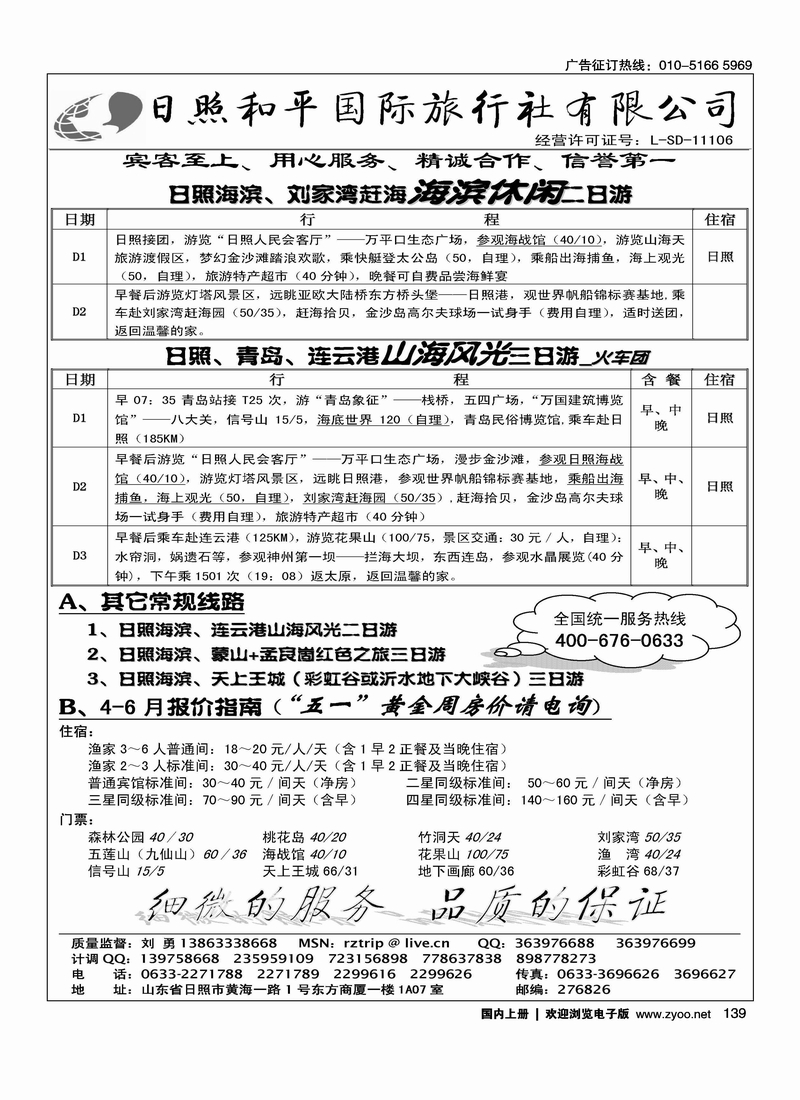 广告征订热线：010-5166 5969
日照和平国际旅行社有限公司
经营许可证号：L-SD-11106
宾客至上、用心服务、精诚合作、信誉第一
日照海滨、刘家湾赶海海滨休闲二日游
日期 行 程 住宿
D1 日照接团，游览“日照人民会客厅”——万平口生态广场，参观海战馆（40/10），游览山海天
旅游渡假区，梦幻金沙滩踏浪欢歌，乘快艇登太公岛（50，自理），乘船出海捕鱼，海上观光 日照
（50，自理），旅游特产超市（40 分钟），晚餐可自费品尝海鲜宴
D2 早餐后游览灯塔风景区，远眺亚欧大陆桥东方桥头堡——日照港，观世界帆船锦标赛基地,乘
车赴刘家湾赶海园（50/35），赶海拾贝，金沙岛高尔夫球场一试身手（费用自理），适时送团，
返回温馨的家。
日照、青岛、连云港山海风光三日游_火车团
日期 行 程 含 餐 住宿
D1 早 07：35 青岛站接 T25 次，游“青岛象征”——栈桥，五四广场，“万国建筑博览 早、中
馆”——八大关，信号山 15/5，海底世界 120（自理），青岛民俗博览馆,乘车赴日 晚 日照
照（185KM）
D2 早餐后游览“日照人民会客厅”——万平口生态广场，漫步金沙滩，参观日照海战
馆（40/10），游览灯塔风景区，远眺日照港，参观世界帆船锦标赛基地，乘船出海 早、中、 日照
捕鱼，海上观光（50，自理），刘家湾赶海园（50/35）,赶海拾贝，金沙岛高尔夫球 晚
场一试身手（费用自理），旅游特产超市（40 分钟）
D3 早餐后乘车赴连云港（125KM），游览花果山（100/75，景区交通：30 元 / 人，自理）：
水帘洞，娲遗石等，参观神州第一坝——拦海大坝，东西连岛，参观水晶展览(40 分 早、中、
钟)，下午乘 1501 次（19：08）返太原，返回温馨的家。 晚
A、其它常规线路
1、日照海滨、连云港山海风光二日游
2、日照海滨、蒙山+孟良崮红色之旅三日游
3、日照海滨、天上王城（彩虹谷或沂水地下大峡谷）三日游
全国统一服务热线
400-676-0633
B、4-6 月报价指南（“五一”黄金周房价请电询）
住宿：
渔家 3～6 人普通间：18～20 元/人/天（含 1 早 2 正餐及当晚住宿）
渔家 2～3 人标准间：30～40 元/人/天（含 1 早 2 正餐及当晚住宿）
普通宾馆标准间：30～40 元 / 间天（净房） 二星同级标准间： 50～60 元 / 间天（净房）
三星同级标准间：70～90 元 / 间天（含早） 四星同级标准间：140～160 元 / 间天（含早）
门票：
森林公园 40／30 桃花岛 40/20 竹洞天 40/24 刘家湾 50/35
五莲山（九仙山）60／36 海战馆 40/10 花果山 100/75 渔 湾 40/24
信号山 15/5 天上王城 66/31 地下画廊 60/36 彩虹谷 68/37
细微的服务 品质的保证
质量监督：刘 勇 13863338668 MSN：rztrip @ live.cn QQ：363976688 363976699
计调 QQ：139758668 235959109 723156898 778637838 898778273
电 话：0633-2271788 2271789 2299616 2299626 传真：0633-3696626 3696627
地 址：山东省日照市黄海一路 1 号东方商厦一楼 1A07 室 邮编：276826
国内上册 | 欢迎浏览电子版 www.zyoo.net 139